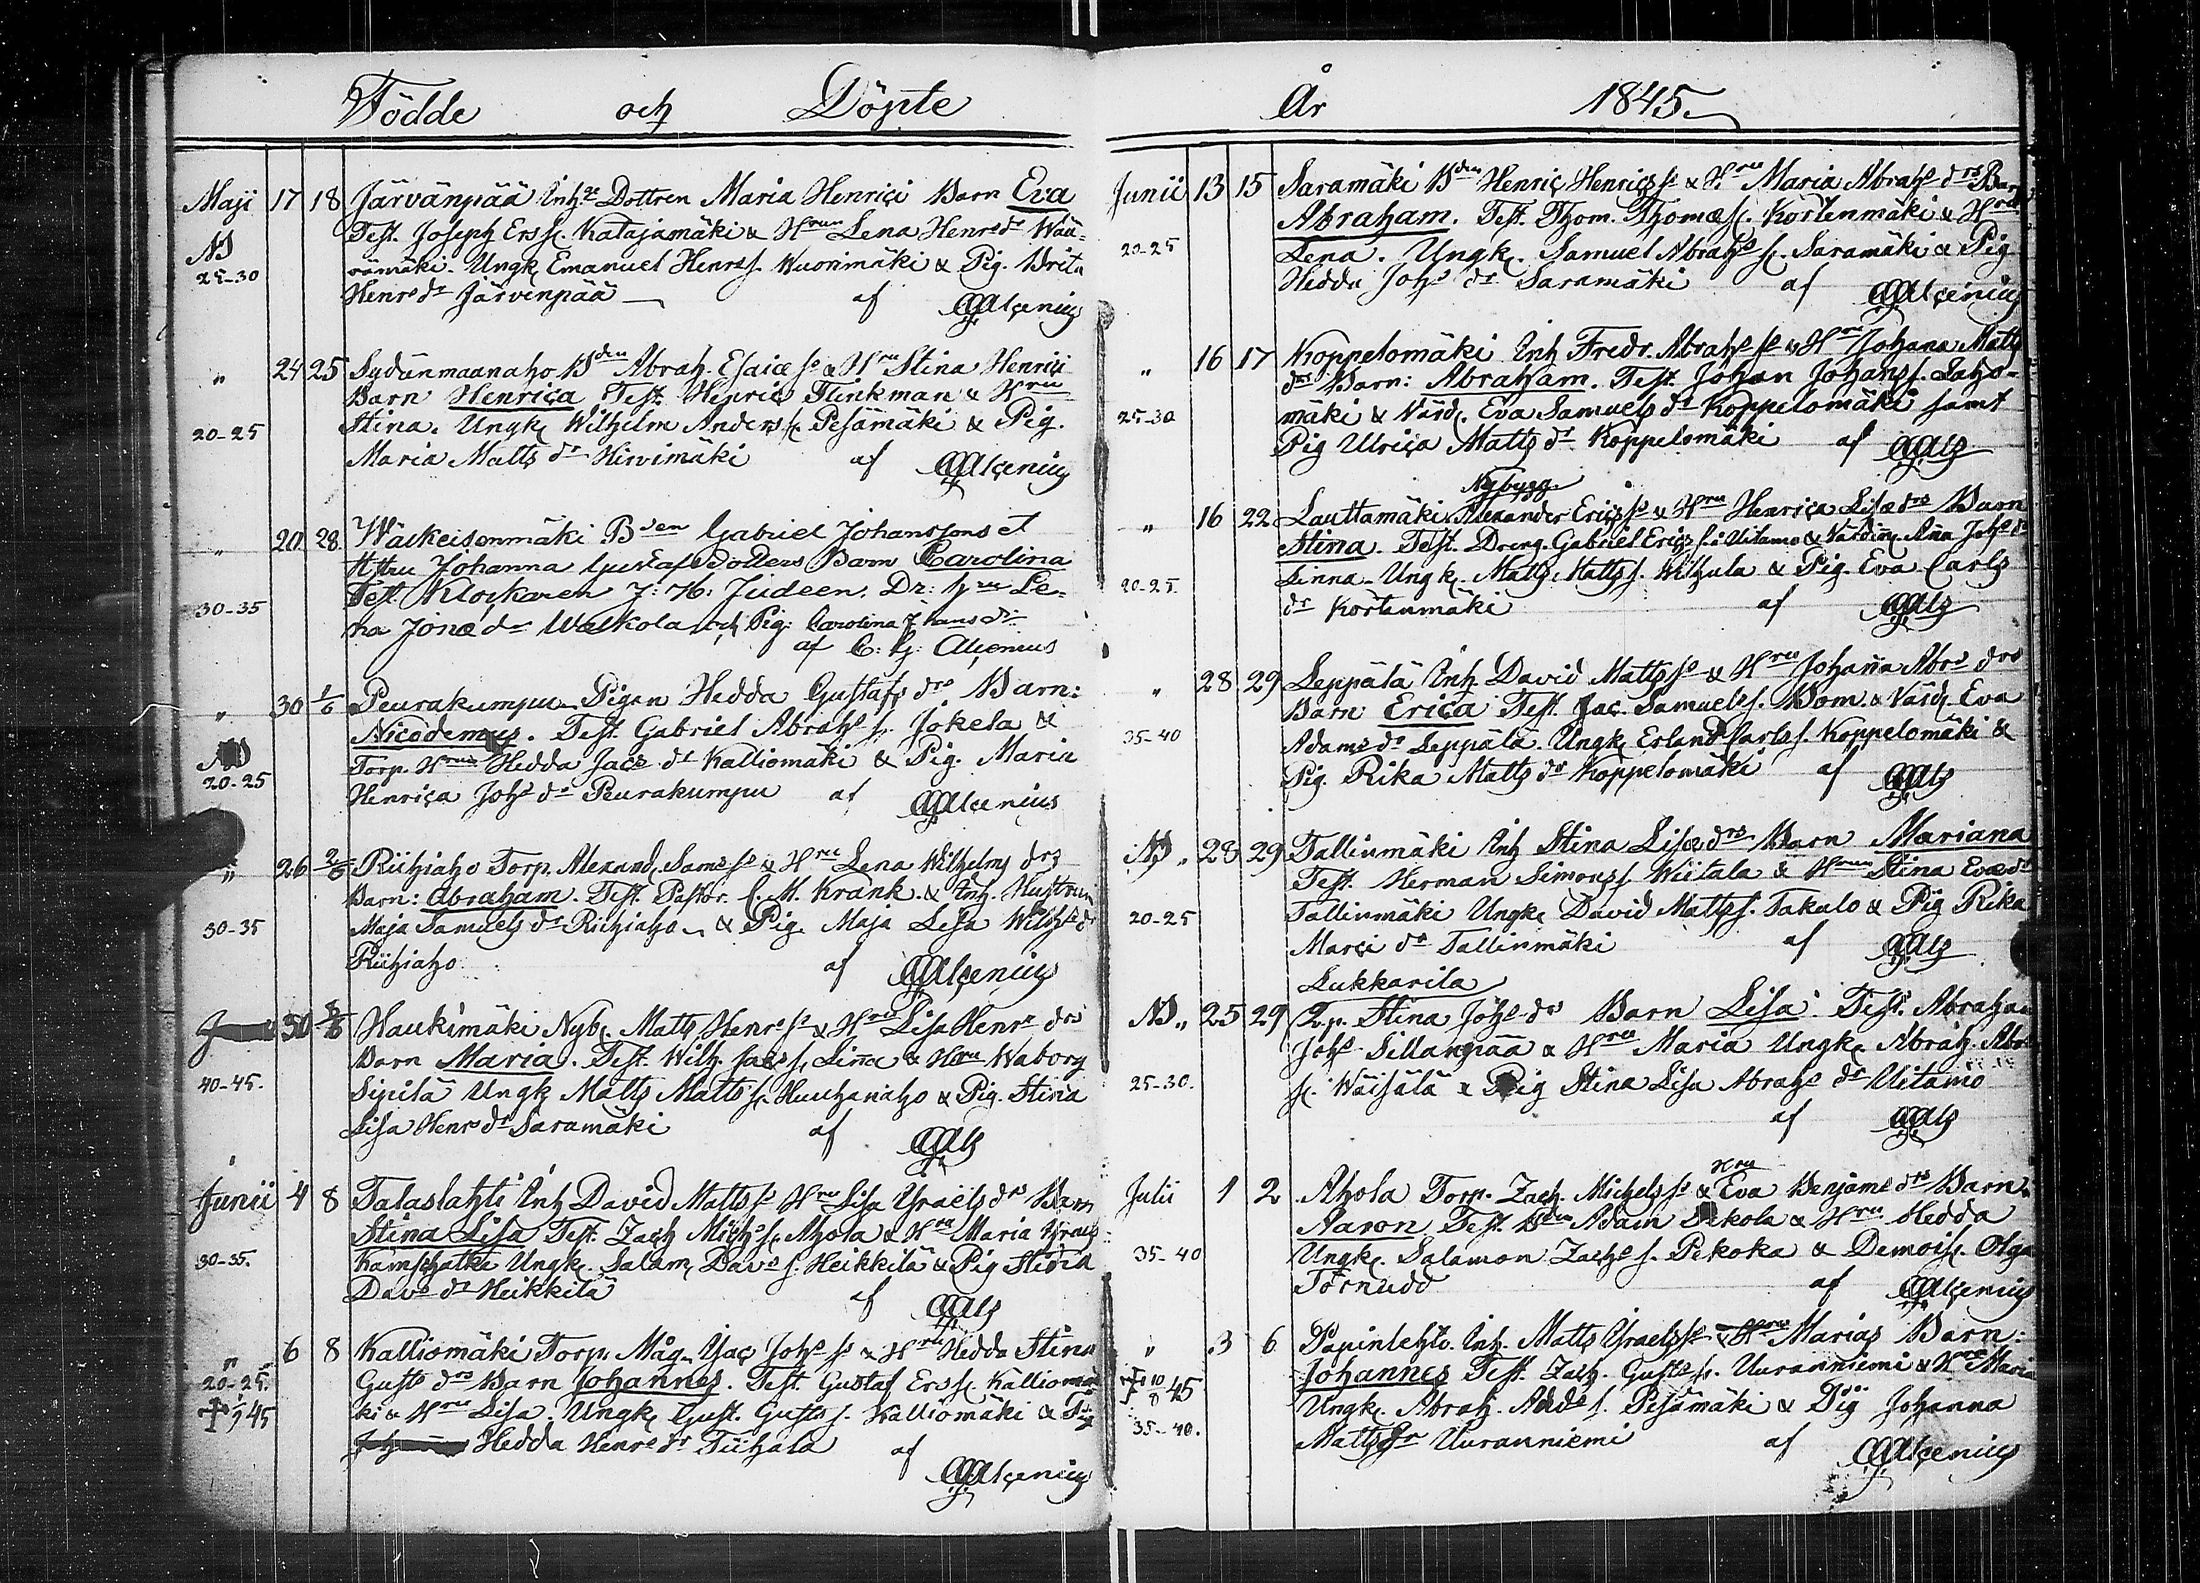 Födde och Döpte
Maji 17 18 Järvänpää Inhs Dottren Maria Henrici Barn Eva
Test. Joseph Erss. Katajamäki & Hrun Lena Henrs dr Wää-
25-30 rämäki. Ungk. Emanuel Henrss. Wuorimäki & Pig. Brita
Henrs dr Järvenpää af CGAlcenius
" 24 25 Sydänmaanaho Bden Abrah. Esaiæ so & Hru Stina Henrici
Barn Henrica Test. Henric Flinkman & Hru
20-25 Stina. Ungk. Wilhelm Anderss. Pesämäki & Pig.
Maria Matts dr Hirvimäki af CGAlcenius
" 20 28 Wäskeisenmäki Bden Gabriel Johanssons et
Hstru Johanna Gustafsdotters Barn Carolina
30-35 Test. Klockaren J: H: Judeen. Dr: hru Le-
na Jonæ dr Walkola och Pig: Carolina Johans dr
af C: G: Alcenius
" 30 1/6 Peurakumpu Pigan Hedda Gustafs drs Barn:
Nicodemus. Test. Gabriel Abrahs s. Jokela &
20-25 Torp. Hrun Hedda Jacs dr Kalliomäki & Pig. Maria
Henrica Johs dr Peurakumpu af CGAlcenius
" 26 2/6 Riihiaho Torp. Alexand. Sams so & Hru Lena Wilhelms drs
Barn: Abraham. Test. Pastor. C. M. Krank. & Inh. Hustrun
30-35 Maja Samuels dr Riihiaho & Pig. Maja Lisa Wilhs dr
Riihiaho af CGAlcenius
30 8/6 Haukimäki Nyb. Matts Henrs so & Hru Lisa Henrs drs
Barn Maria. Test. Wilh. Jacs s. Linna & Hru Waborg
40-45. Sipilä Ungk. Matts Matts s. Huuhanaho & Pig. Stina
Lisa Henrs dr Saramäki af CGAls
Junii 4 8 Talaslahti Inh David Matts so Hru Lisa Ysraels drs Barn
Stina Lisa Test. Zach Michs s. Ahola & Hru Maria Ysraels
30-35. Kamschatka Ungk. Salam. Davs s. Heikkilä & Pig Stina
Davs dr Heikkilä af CGAls
" 6 8 Kalliomäki Torp. Måg. Jac Johs so & Hru Hedda Stina
20-25. Gusts drs Barn Johannes. Test. Gustaf Erss. Kalliomä-
ki & Hru Lisa. Ungk. Gust. Gusts s. Kalliomäki & Pig
Hedda Henrs dr Tiihala af
CGAlcenius
År 1845.
Junii 13 15 Saramäki Bden Henric Henrics so & Hru Maria Abrahs drs Barn
Abraham. Test. Thom. Thomæs. Kortenmäki & Hru
20-25 Lena. Ungk. Samuel Abrahs s. Saramäki & Pig
Hedda Johs dr Saramäki af CGAlcenius
" 16 17 Koppelomäki Inh Fredr. Abrahs so & Hru Johana Matts
drs Barn: Abraham. Test. Johan Johanss. Laho-
25-30 mäki & Värd. Eva Samuels dr Koppelomäki samt
Pig Ulrica Matts dr Koppelomäki af CGAls
Nybygg.
" 16 22 Lauttamäki Alexander Erics so & Hru Henrica Lisæ drs Barn
Stina. Test. Dreng. Gabriel Erics s. å Uitamo & Värdin. Ana Johs dr
20-25. Linna. Ungk. Matts Matts s. Wilhula & Pig. Eva Carls
dr Kortenmäki af CGAls
" 28 29 Leppälä Inh. David Matts so & Hru Johanna Abrs drs
Barn Erica Test. Jac. Samuels s. Bom. & Värd. Eva
35-40 Adams dr Leppälä. Ungk. Erland Carls s. Koppelomäki &
Pig. Rika Matts dr Koppelomäki af CGAls
" 28 29 Tallinmäki Inh Stina Lisæ drs Barn Mariana
Test. Herman Simons s. Wiitala & Hrun Stina Evæ dr
20-25 Tallinmäki Ungk. David Matts s. Takalo & Pig Rika
Marci dr Tallinmäki af CGAls
Lukkarila
" 25 29 Q.p. Stina Johs drs Barn Lisa Test. Abraham
Johs Sillanpää & Hru Maria Ungk. Abrah. Abrs
25-30. s. Wäisälä & Pig Stina Lisa Abrahs dr Uitamo
af CGAls
Julii 1 2 Ahola Torp. Zach. Michels so & Hru Eva Benjams drs Barn.
Aaron Test. Bden Adam Pekola & Hru Hedda
35-40 Ungk. Salamon Zachs s. Pekoka & Demois. Olga
Törnudd af CGAlcenius
" 3 6 Papinlehto Inh. Matts Ysraels so & Hrus Marias Barn:
† 10/8 45 Johannes Test. Zach. Gusts s. Uuranniemi & Hru Maria
Ungk. Abrah. Adds s. Pesämäki & Pig Johanna
35-40. Matts dr Uuranniemi af CGAlcenius